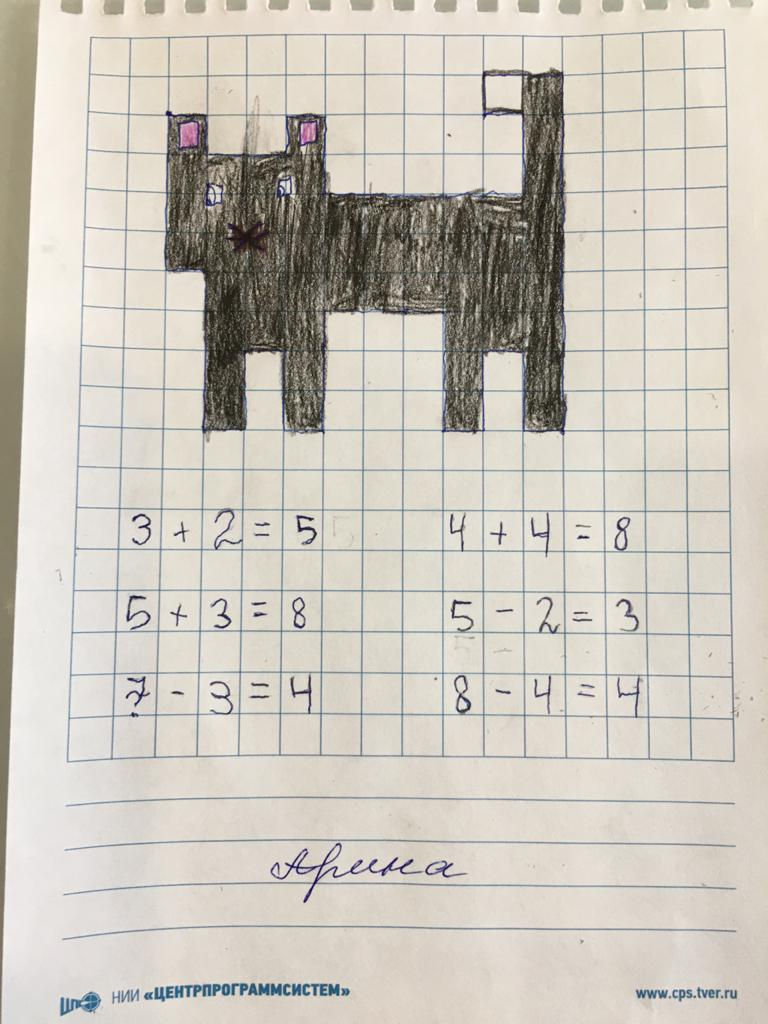 3 + 2 = 5 4 + 4 = 8
5 + 3 = 8 5 - 2 = 3
7 - 3 = 4 8 - 4 = 4
Арина
НИИ «ЦЕНТРПРОГРАММСИСТЕМ» www.cps.tver.ru